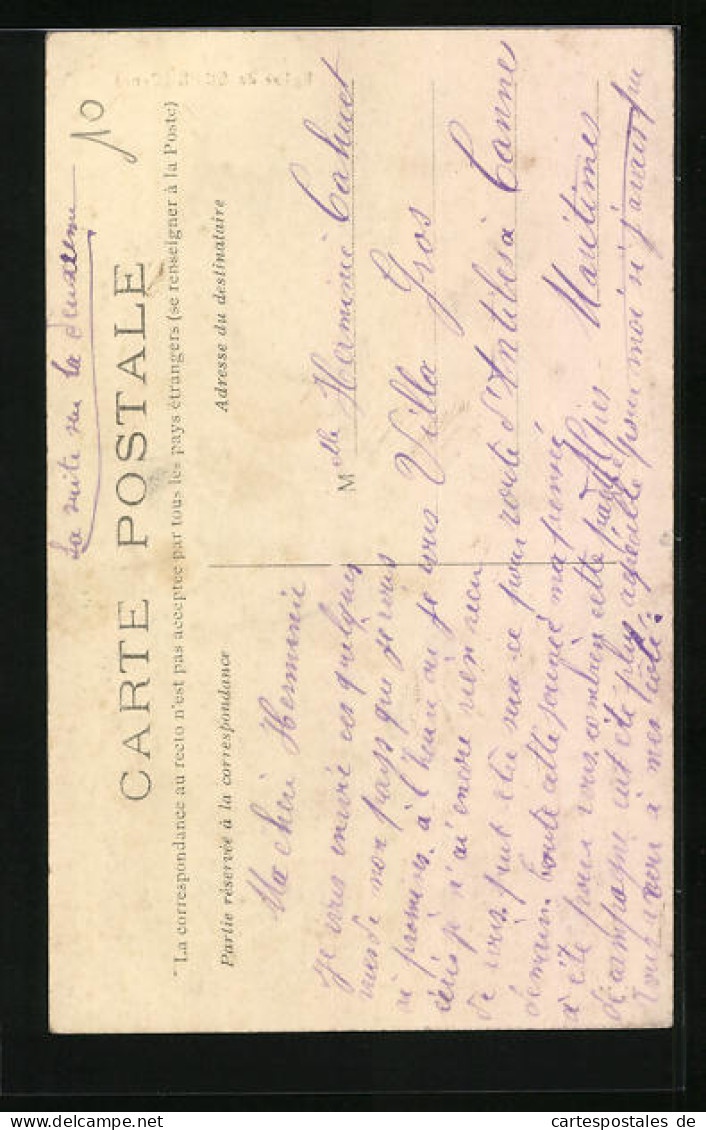 La suite sur la deuxieme
10
CARTE POSTALE
La correspondance au recto n'est pas acceptée par tous les pays étrangers (se renseigner à la Poste)
Partie réservée à la correspondance
Adresse du destinataire
Ma chère Herminie
Je vous envoie ces quelques
vues de mon pays que je vous
ai promises. à l'heure ou je vous
écris je n'ai encore rien recu
de vous peut être sera-ce pour
demain. toute cette journée ma pensée
a été pour vous combien cette partie
de campagne eut été plus agréable pour moi si j'avais pu
vous avoir à mes côtés.
Melle Herminie Cahuet
Villa Gros
route d'Antibes à Cannes
Alpes-Maritimes
cartespostales de